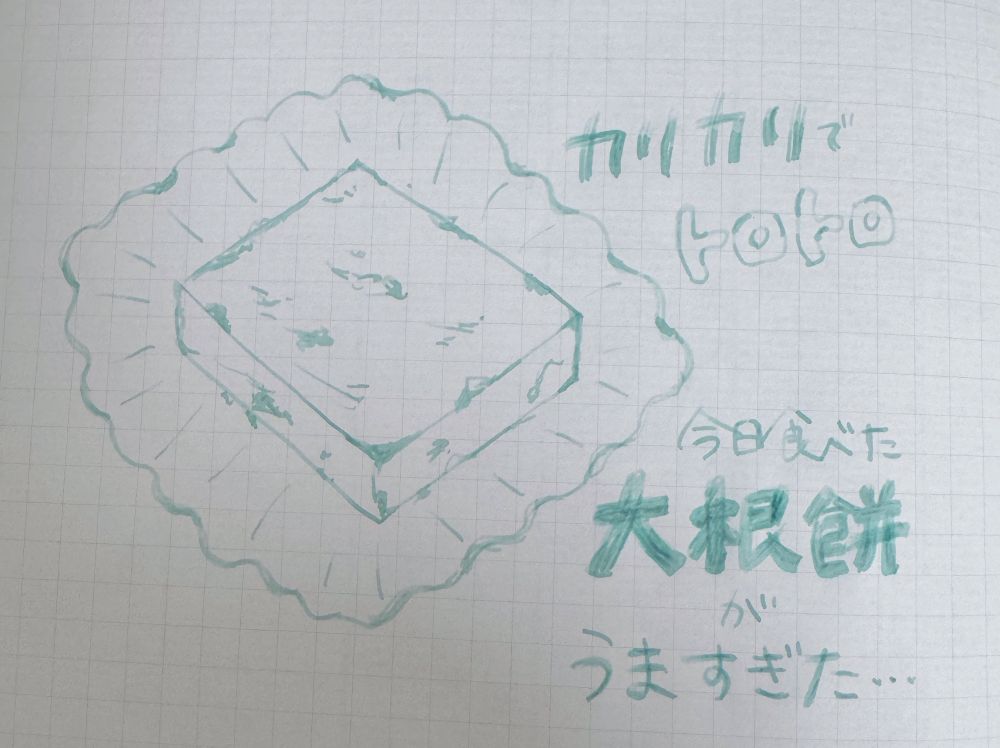 カリカリで
トロトロ
今日食べた
大根餅
が
うますぎた…